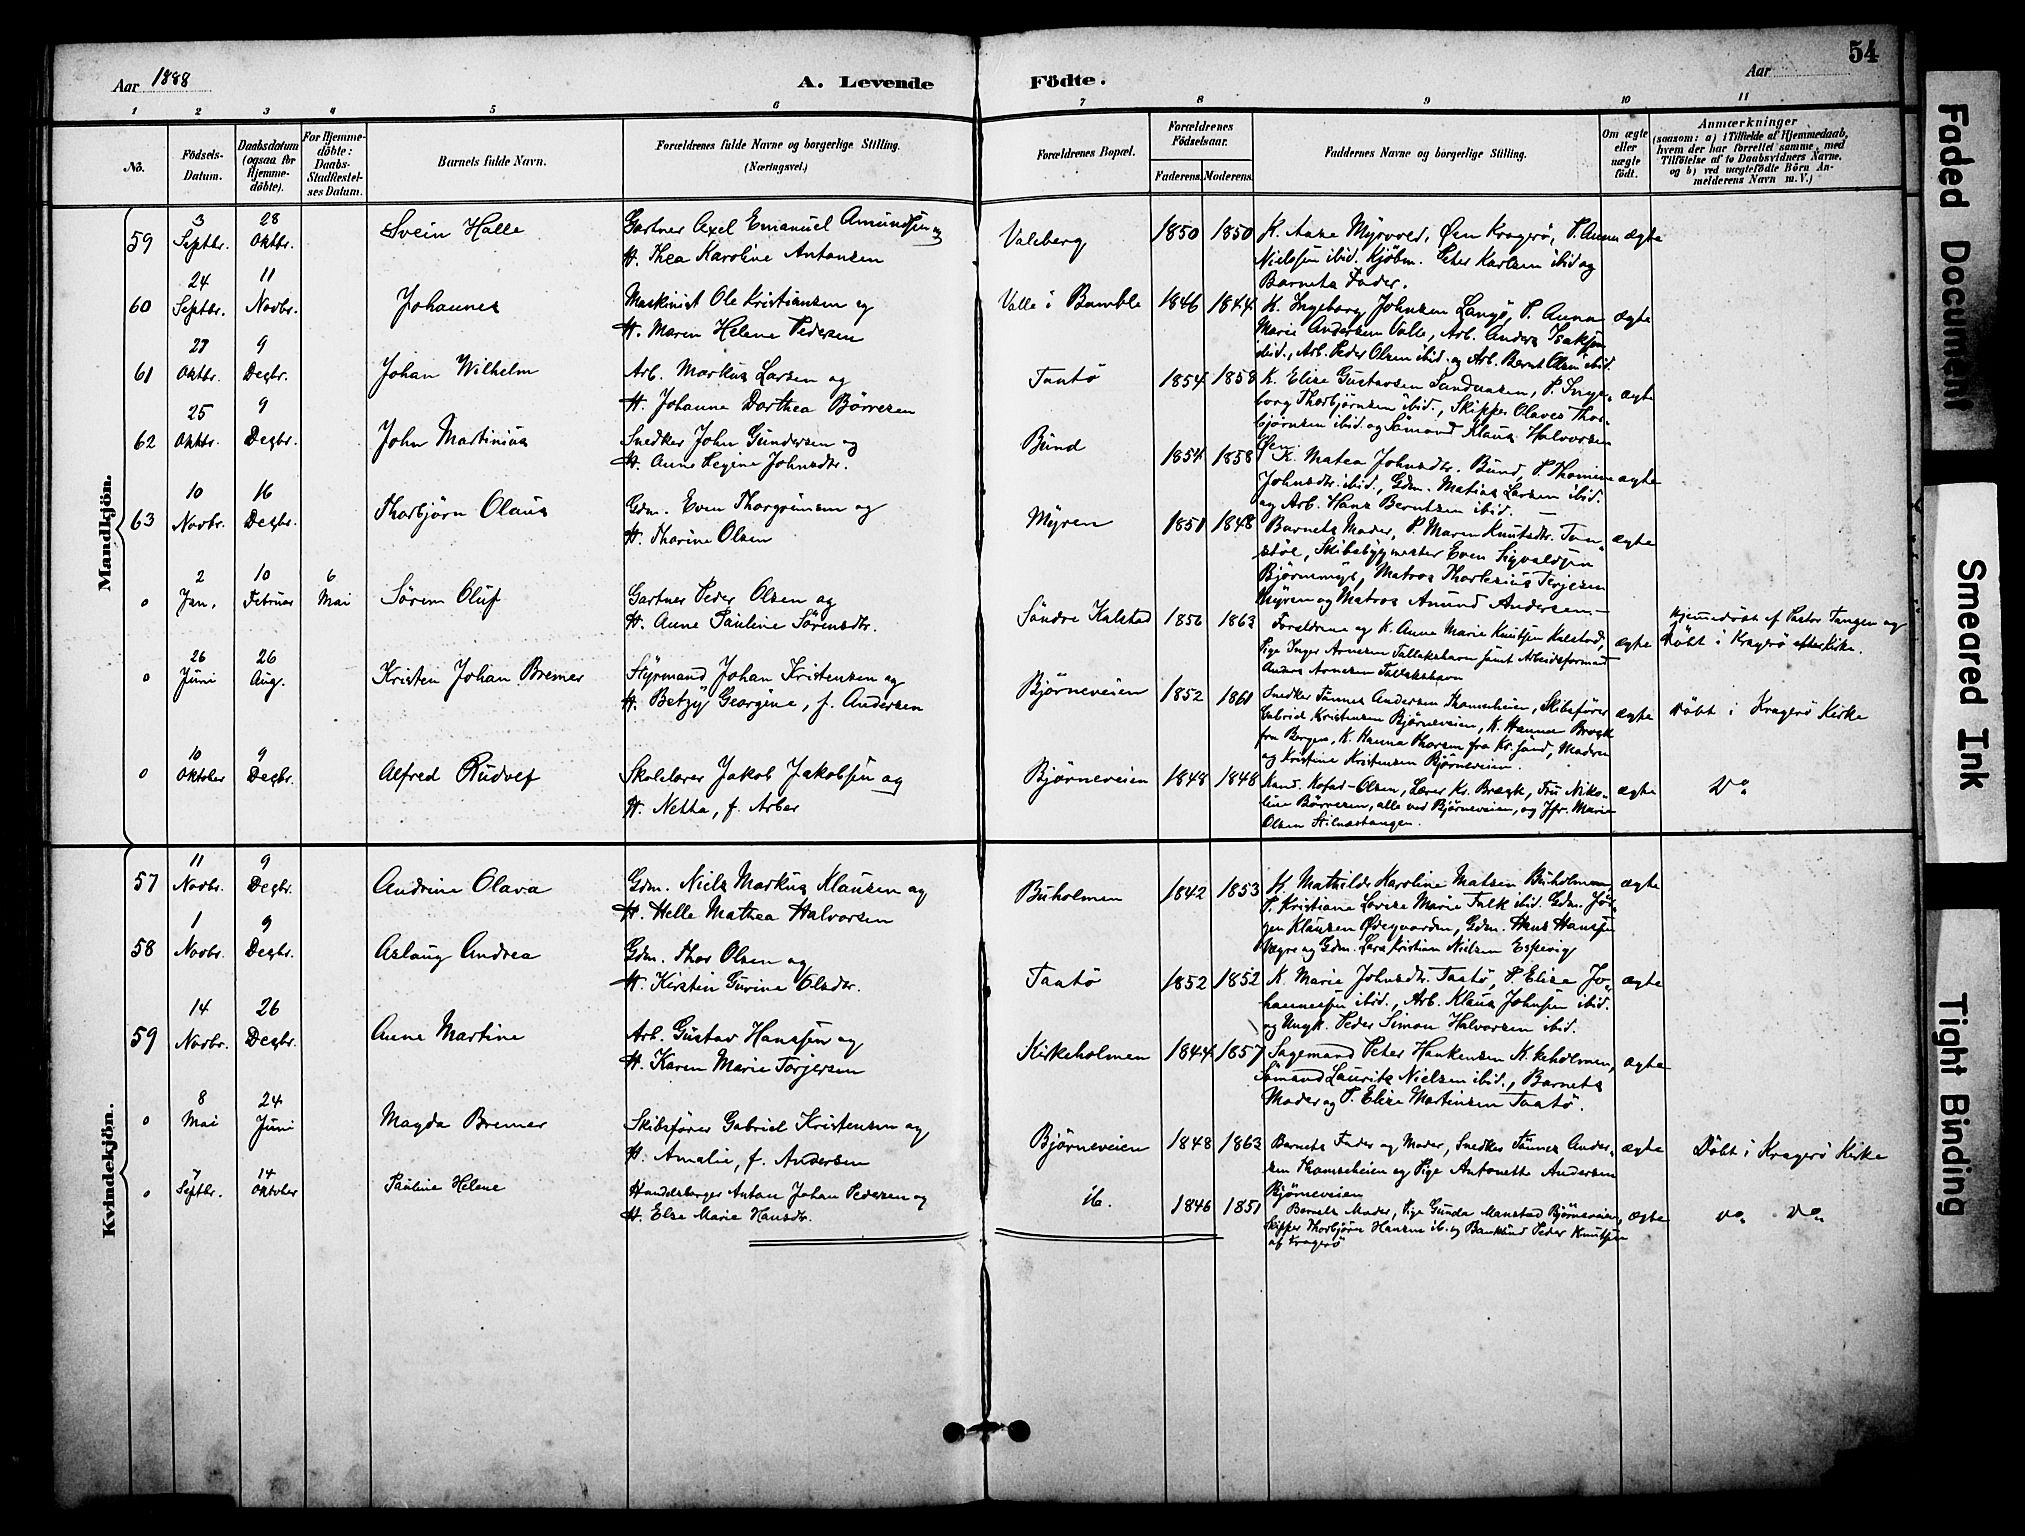 Aar 1888
A. Levende
Födte.
Aar
54
1 2 3 4 5 6 7 8 9 10 11
No.
Födsels-Datum.
Daabsdatum (ogsaa for Hjemme-döbte).
For Hjemme-döbte: Daabs-Stadfæstel-ses Datum.
Barnets fulde Navn.
Forældrenes fulde Navne og borgerlige Stilling. (Næringsvei.)
Forældrenes Bopæl.
Forældrenes Födselsaar.
Faderens. Moderens.
Faddernes Navne og borgerlige Stilling.
Om ægte eller uægte födt.
Anmærkninger
(saasom: a) i Tilfælde af Hjemmedaab, hvem der har forrettet samme, med Tilföielse af to Daabsvidners Navne, og b) ved uægtefödte Börn An-melderens Navn m. V.)
Mandkjön.
59 3 Septbr. 28 Oktbr. Svein Halle
Gartner Axel Emanuel Amundsen og
H. Thea Karoline Antonsen
Valeberg 1850 1850
K. Aase Myrvold, Øen Kragerö, P. Anna
Nielssen ibid. Kjøbm. Peter Karlsen ibid og
Barnets Fader.
ægte
60 24 Septbr. 11 Novbr. Johannes
Maskinist Ole Kristiansen og
H. Maren Helene Pedersen
Valle i Bamble 1846 1844
K. Ingeborg Johnsen Langö, P. Anna
Marie Andersen Valle, Arb. Anders Isaksen
ibid., Arb. Peder Olsen ibid. og Arb. Bernt Olsen ibid.
ægte
61 27 Oktbr. 9 Decbr. Johan Wilhelm
Arb. Markus Larsen og
H. Johanne Dorthea Börresen
Taatö 1854 1858
K. Elise Gustavsen Sandaasen, P. Inge-
borg Thorbjørnsen ibid., Skipper Olaves Thor-
bjørnsen ibid. og Sömand Klaus Halvorsen
Øen.
ægte
62 25 Oktbr. 9 Decbr. John Martinius
Snedker John Gundersen og
H. Anne Regine Johnsdtr.
Bund 1854 1858
K. Matea Johnsdtr. Bund, P. Thomine
Johnsdtr. ibid., Gdm. Matias Larsen ibid.
og Arb. Hans Berntsen ibid. —
ægte
63 10 Novbr. 16 Decbr. Thorbjörn Olaus
Gdm. Even Thorgrimsen og
H. Thorine Olsen
Myren 1851 1848
Barnets Moder, P. Maren Knutsdtr. Tven-
stöl, Skibsbygmester Even Sigvaldsen
Bjørnemyr, Matros Thorlesius Terjesen
Myren og Matros Amund Andersen. —
ægte
0 2 Jan. 10 Februar 6 Mai Sören Oluf
Gartner Peder Olsen og
H. Anne Pauline Sörensdtr.
Söndre Kalstad 1856 1863
Forældrene og K. Anne Marie Knutsen Kalstad,
Pige Inger Arnesen Tallakshavn samt Arbeidsformand
Anders Arnesen Tallakshavn
ægte
Hjemmedöbt af Pastor Tangen og
Döbt i Kragerö Kirke.
0 26 Juni 26 Aug. Kristen Johan Bremer
Styrmand Johan Kristensen og
H. Betzy Georgine, f. Andersen
Bjørneveien 1852 1861
Snedker Tönnes Andersen Thomesheien, Skibsfører
Gabriel Kristensen Bjørneveien, K. Hanna Brogk
fra Bergen, K. Hanna Thorsen fra Kr.sand, Moderen
og Kristine Kristensen Bjørneveien
ægte
Döbt i Kragerö Kirke
0 10 Oktober 9 Decbr. Alfred Rudolf
Skolelærer Jakob Jakobsen og
H. Netha, f. Arber
Bjørneveien 1848 1848
Kand. Kofod-Olsen, Lærer Kr. Brægk, Fru Niko-
line Börresen, alle ved Bjørneveien, og Jfr. Marie
Olsen Stilnæstangen.
ægte
Do.
Kvindekjön.
57 11 Novbr. 9 Decbr. Andrine Olava
Gdm. Niels Markus Klausen og
H. Helle Mathea Halvorsen
Buholmen 1842 1853
K. Mathilde Karoline Matsen Buholmen,
P. Kristiane Lovise Marie Falk ibid. Gdm. Jör-
gen Klausen Ødegaarden, Gdm. Hans Hansen
og Gdm. Lars Kristian Nielsen Espevig
ægte
58 1 Novbr. 9 Decbr. Aslaug Andrea
Gdm. Thor Olsen og
H. Kirsten Gurine Olsdtr.
Taatö 1852 1852
K. Marie Johnsdtr. Taatö, P. Elise Jo-
hannessen ibid., Arb. Klaus Johnsen ibid.
og Ungk. Peder Simon Halvorsen ibid.
ægte
59 14 Novbr. 26 Decbr. Anne Martine
Arb. Gustav Hanssen og
H. Karen Marie Torjersen
Kirkeholmen 1844 1857
Sagemand Peter Haakensen Kirkeholmen,
Sömand Laurits Nielsen ibid., Barnets
Moder og P. Elise Martinsen Taatö.
ægte
0 8 Mai 24 Juni Magda Bremer
Skibsfører Gabriel Kristensen og
H. Amalie, f. Andersen
Bjørneveien 1848 1863
Barnets Fader og Moder, Snedker Tönnes Ander-
sen Thomesheien og Pige Antonette Andersen
Bjørneveien
ægte
Döbt i Kragerö Kirke
0 7 Septbr. 14 Oktober Pauline Helene
Handelsborger Anton Johan Pedersen og
H. Else Marie Hansdtr.
ib. 1846 1851
Barnets Moder, Pige Gunda Monstad Bjørneveien,
Skipper Thorbjörn Hansen ib. og Bankbud Peder Knutsen
af Kragerö
ægte
Do. Do.
Faded Document
Smeared Ink
Tight Binding